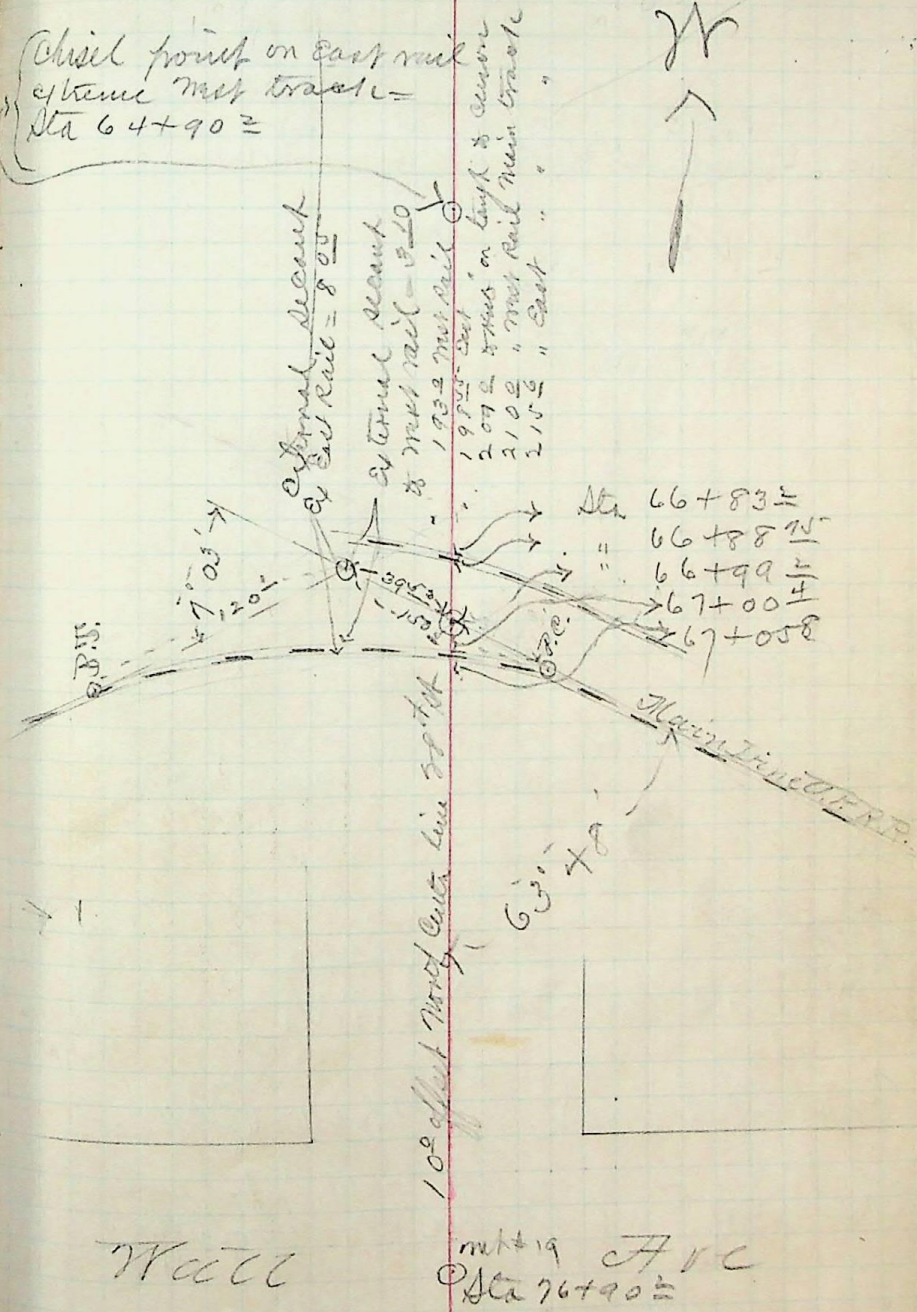 Chisel point on east rail
extreme West track =
Sta 64+90 2
W
External Secant
to East Rail = 8 05
External Secant
to West rail = 3 10
193 2 West Rail
198 45 East "
209 2 on tang to curve
210 2 " West Rail Main track
215 6 " East " " "
Sta 66+83 2
" 66+88 45
" 66+99 2
67+00 4
67+05 8
7° 03'
120
P.T.
P.C.
Main Line U.P.R.R.
63° 48'
10 0 offset North Center Line 38th St
Wall Ave
Sta 76+90 2